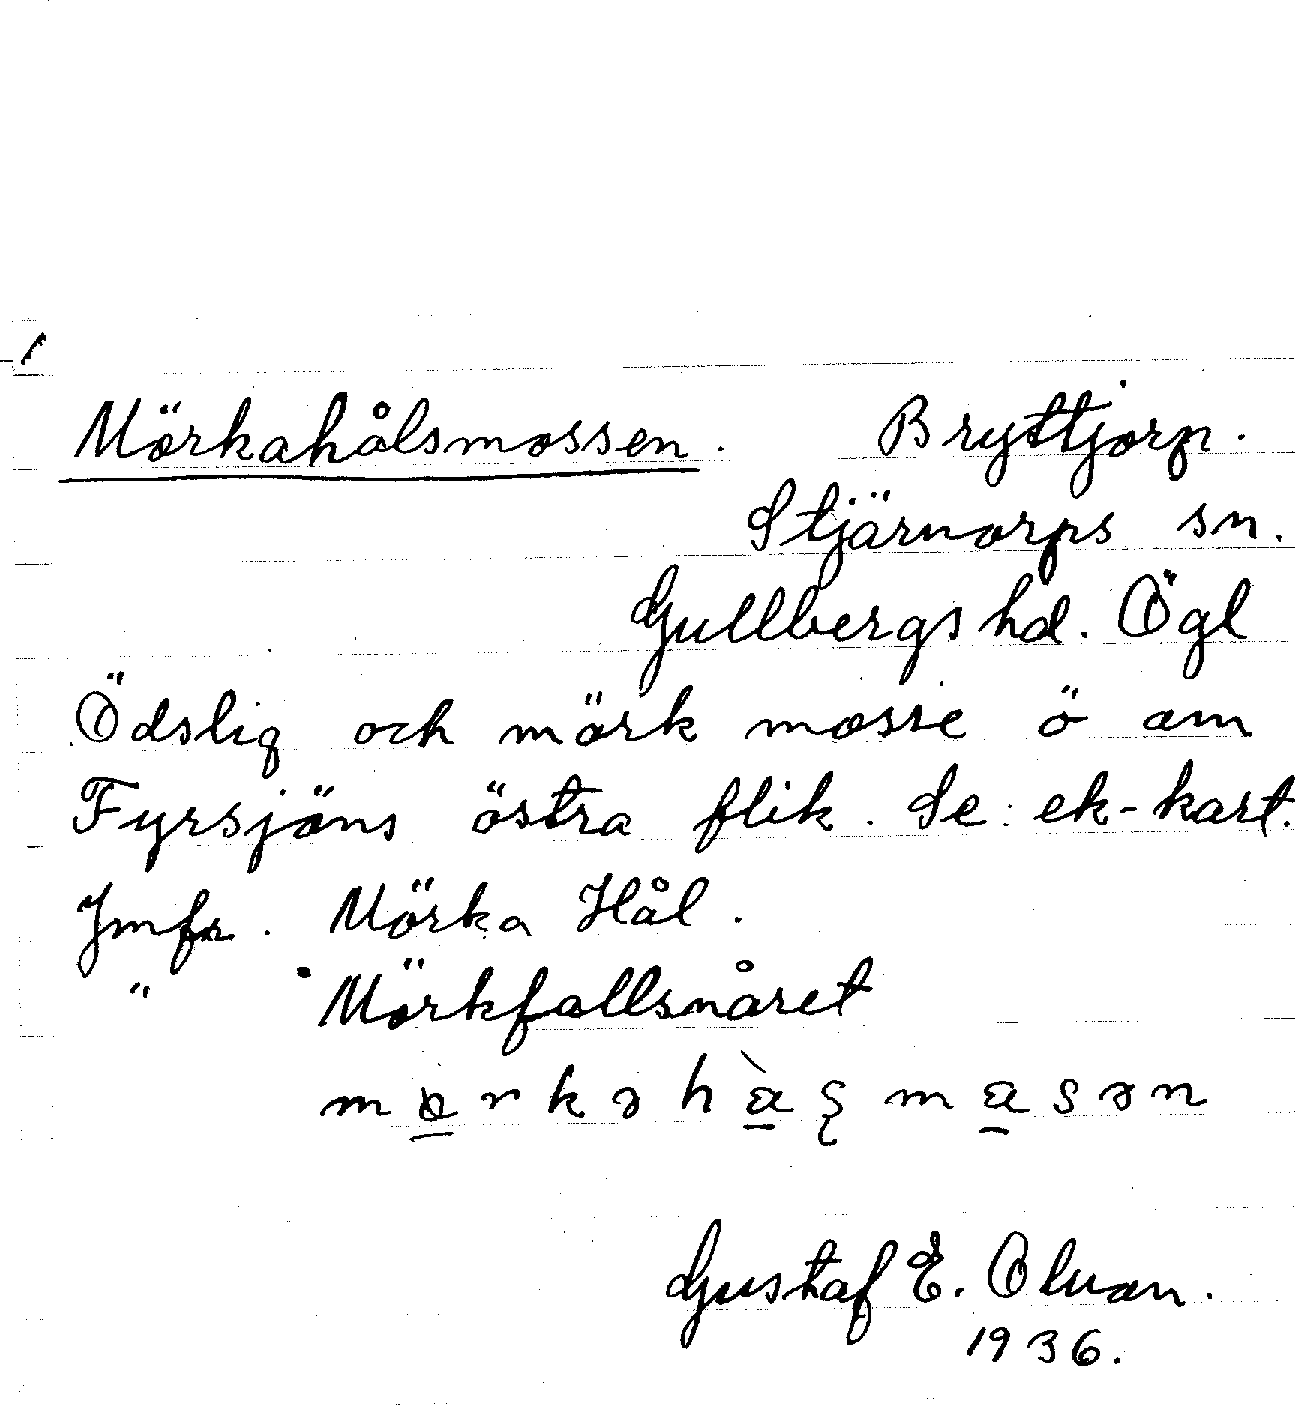 Mörkahålsmossen. Bryttjorp.
Stjärnorps sn.
Gullbergs hd. Ögl
Ödslig och mörk mosse ö om
Fyrsjöns östra flik. Se: ek-kart.
Jmfr. Mörka Hål.
" Mörkfallsnåret
Gustaf E.
1936.